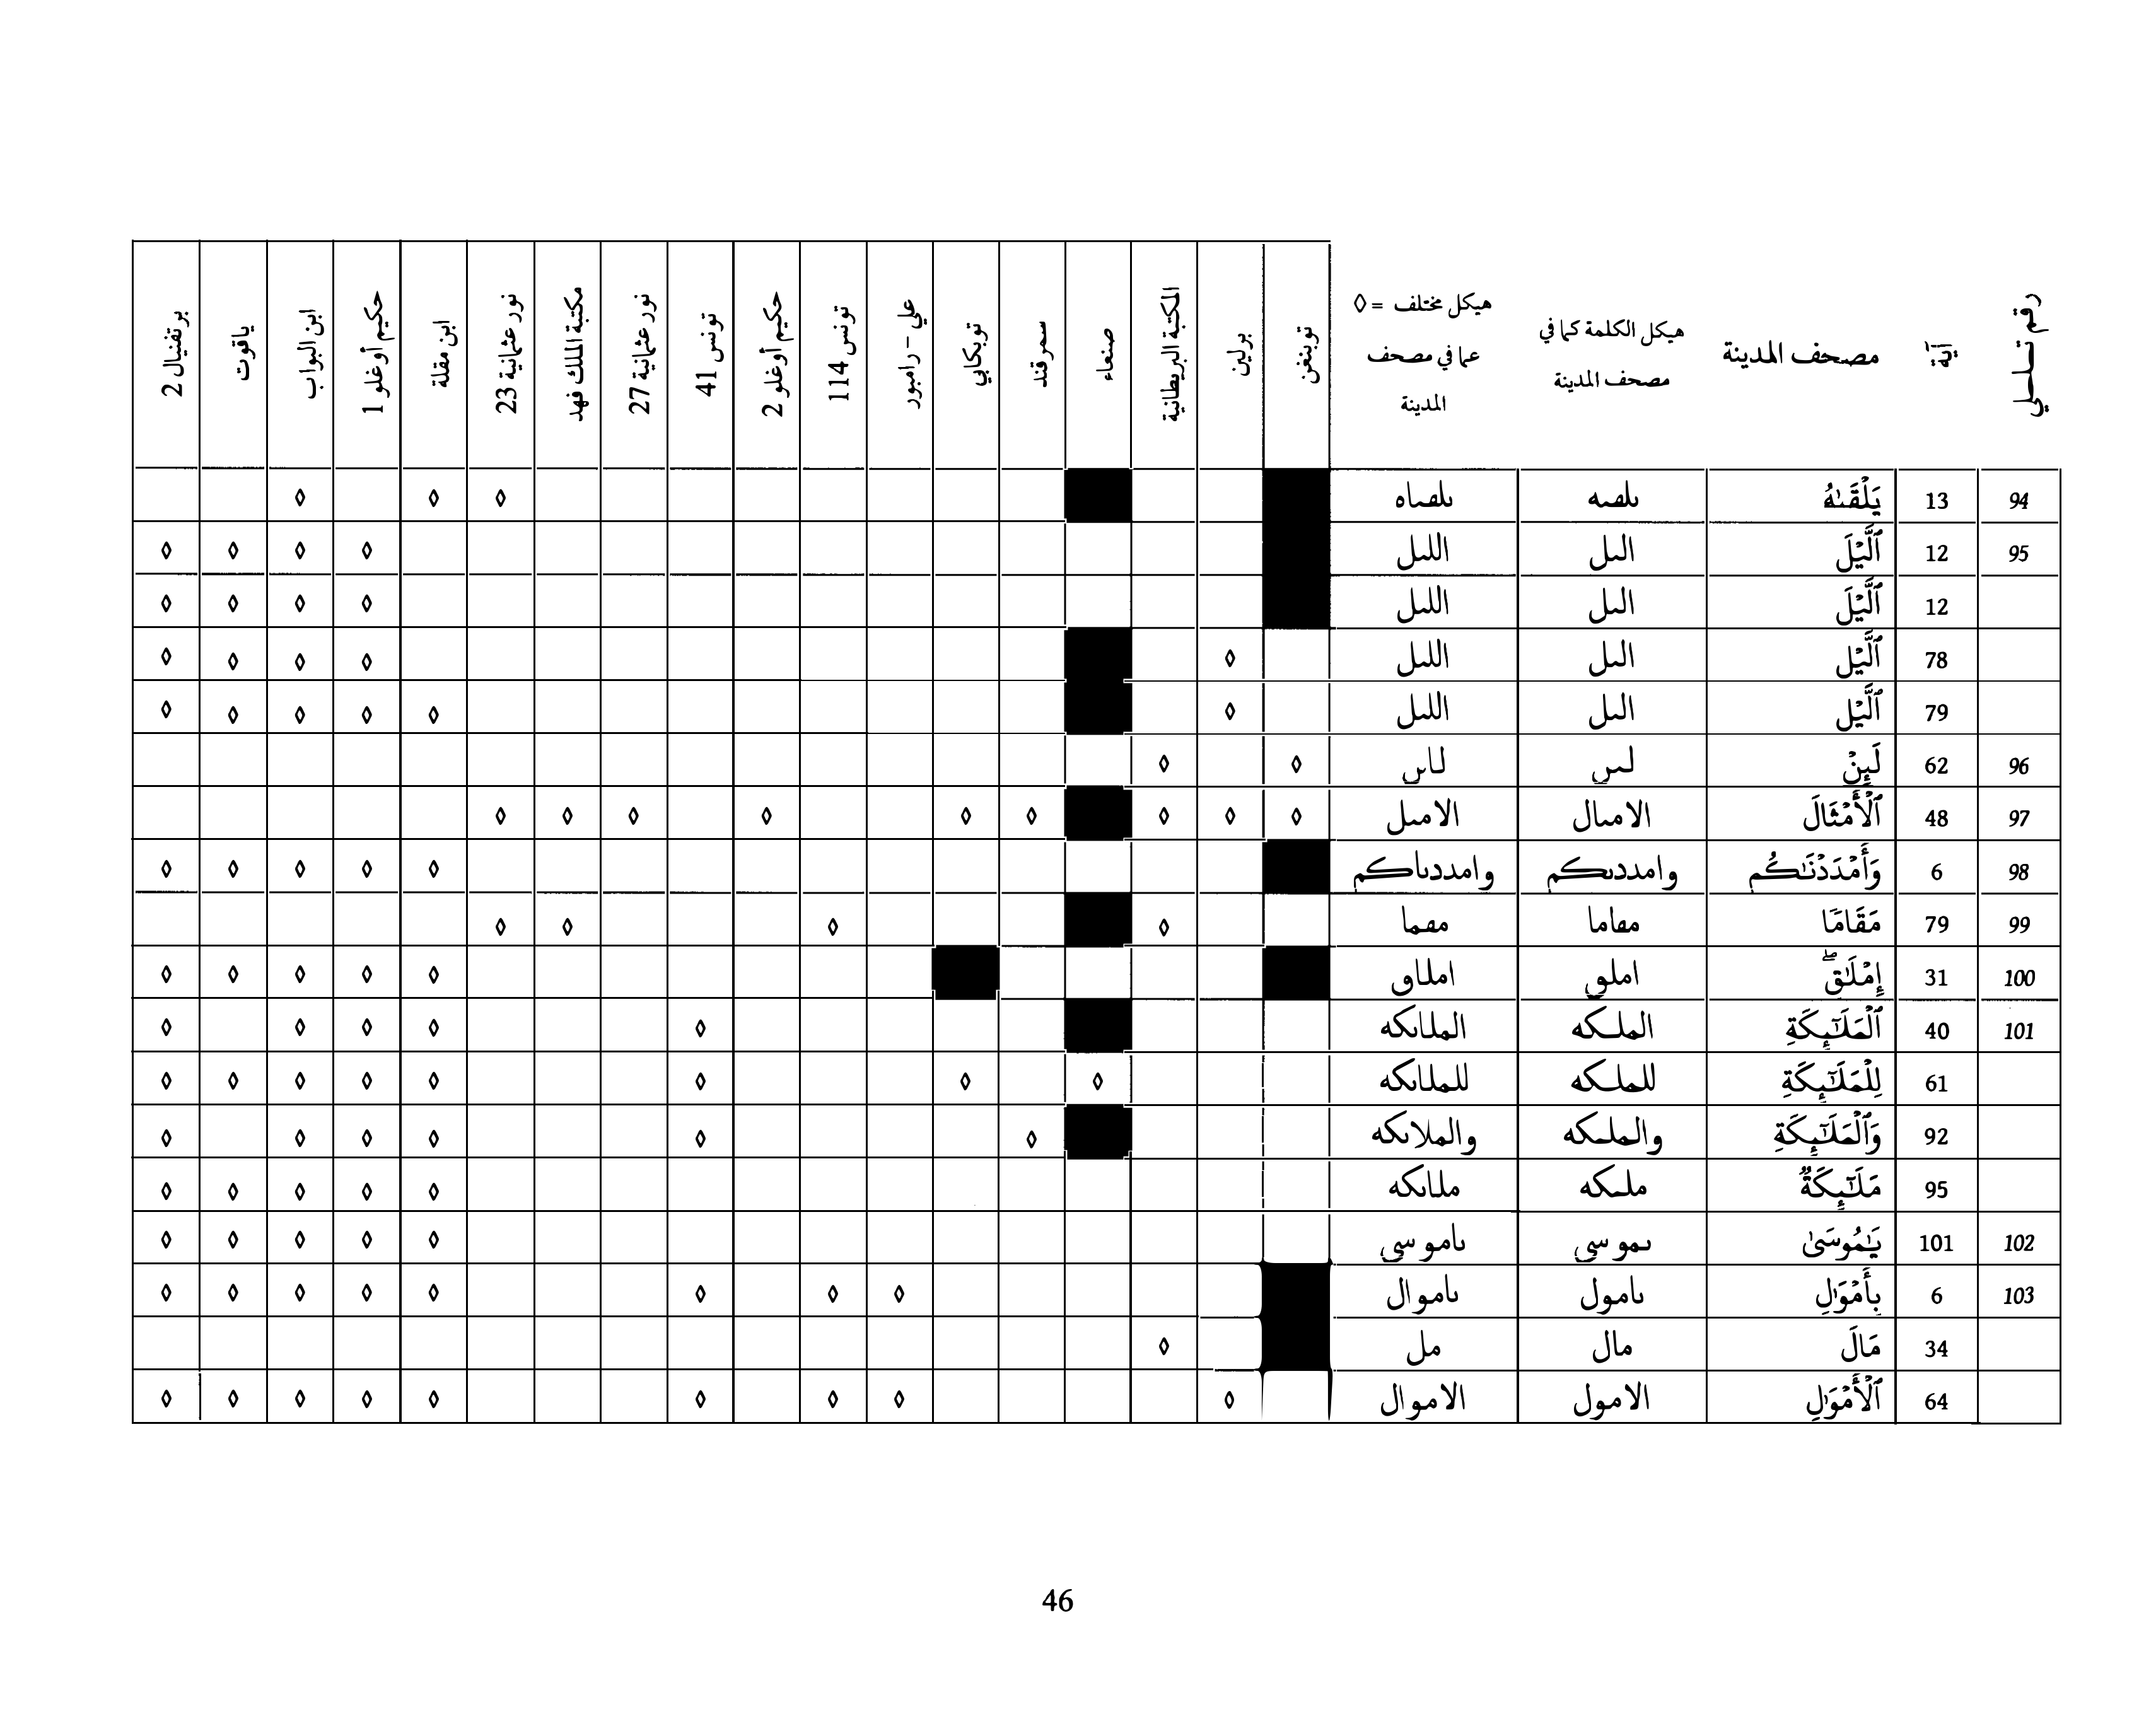 رقم تسلسلي	آية	مصحف المدينة	هيكل الكلمة كما في مصحف المدينة	هيكل مختلف = ◊ عما في مصحف المدينة	توبنغن	برلين	المكتبة البريطانية	صنعاء	سمرقند	توبكابي	علي - رامبور	تونس 114	حكيم أوغلو 2	تونس 41	نور عثمانية 27	مكتبة الملك فهد	نور عثمانية 23	ابن مقلة	حكيم أوغلو 1	ابن البواب	ياقوت	برتفنيال 2
94	13	يَلْقَىٰهُ	ىلڡىه	ىلڡىاه	◊	◊	◊
95	12	ٱلَّيْلَ	الىل	اللىل	◊	◊	◊	◊
12	ٱلَّيْلَ	الىل	اللىل	◊	◊	◊	◊
78	ٱلَّيْلِ	الىل	اللىل	◊	◊	◊	◊	◊
79	ٱلَّيْلِ	الىل	اللىل	◊	◊	◊	◊	◊	◊
96	62	لَئِنْ	لىں	لاىں	◊	◊
97	48	ٱلْأَمْثَالَ	الامىال	الامىل	◊	◊	◊	◊	◊	◊	◊	◊	◊
98	6	وَأَمْدَدْنَٰكُم	وامددىكم	وامددىاكم	◊	◊	◊	◊	◊
99	79	مَقَامًا	مڡاما	مڡما	◊	◊	◊	◊
100	31	إِمْلَٰقٍۖ	املٯ	املاٯ	◊	◊	◊	◊	◊
101	40	ٱلْمَلَٰٓئِكَةِ	الملىكه	الملاىكه	◊	◊	◊	◊	◊
61	لِلْمَلَٰٓئِكَةِ	للملىكه	للملاىكه	◊	◊	◊	◊	◊	◊	◊	◊
92	وَٱلْمَلَٰٓئِكَةِ	والملىكه	والملاىكه	◊	◊	◊	◊	◊	◊
95	مَلَٰٓئِكَةٌ	ملىكه	ملاىكه	◊	◊	◊	◊	◊
102	101	يَٰمُوسَىٰ	ىموسى	ىاموسى	◊	◊	◊	◊	◊
103	6	بِأَمْوَٰلٍ	ىامول	ىاموال	◊	◊	◊	◊	◊	◊	◊	◊
34	مَالَ	مال	مل	◊
64	ٱلْأَمْوَٰلِ	الامول	الاموال	◊	◊	◊	◊	◊	◊	◊	◊	◊
46